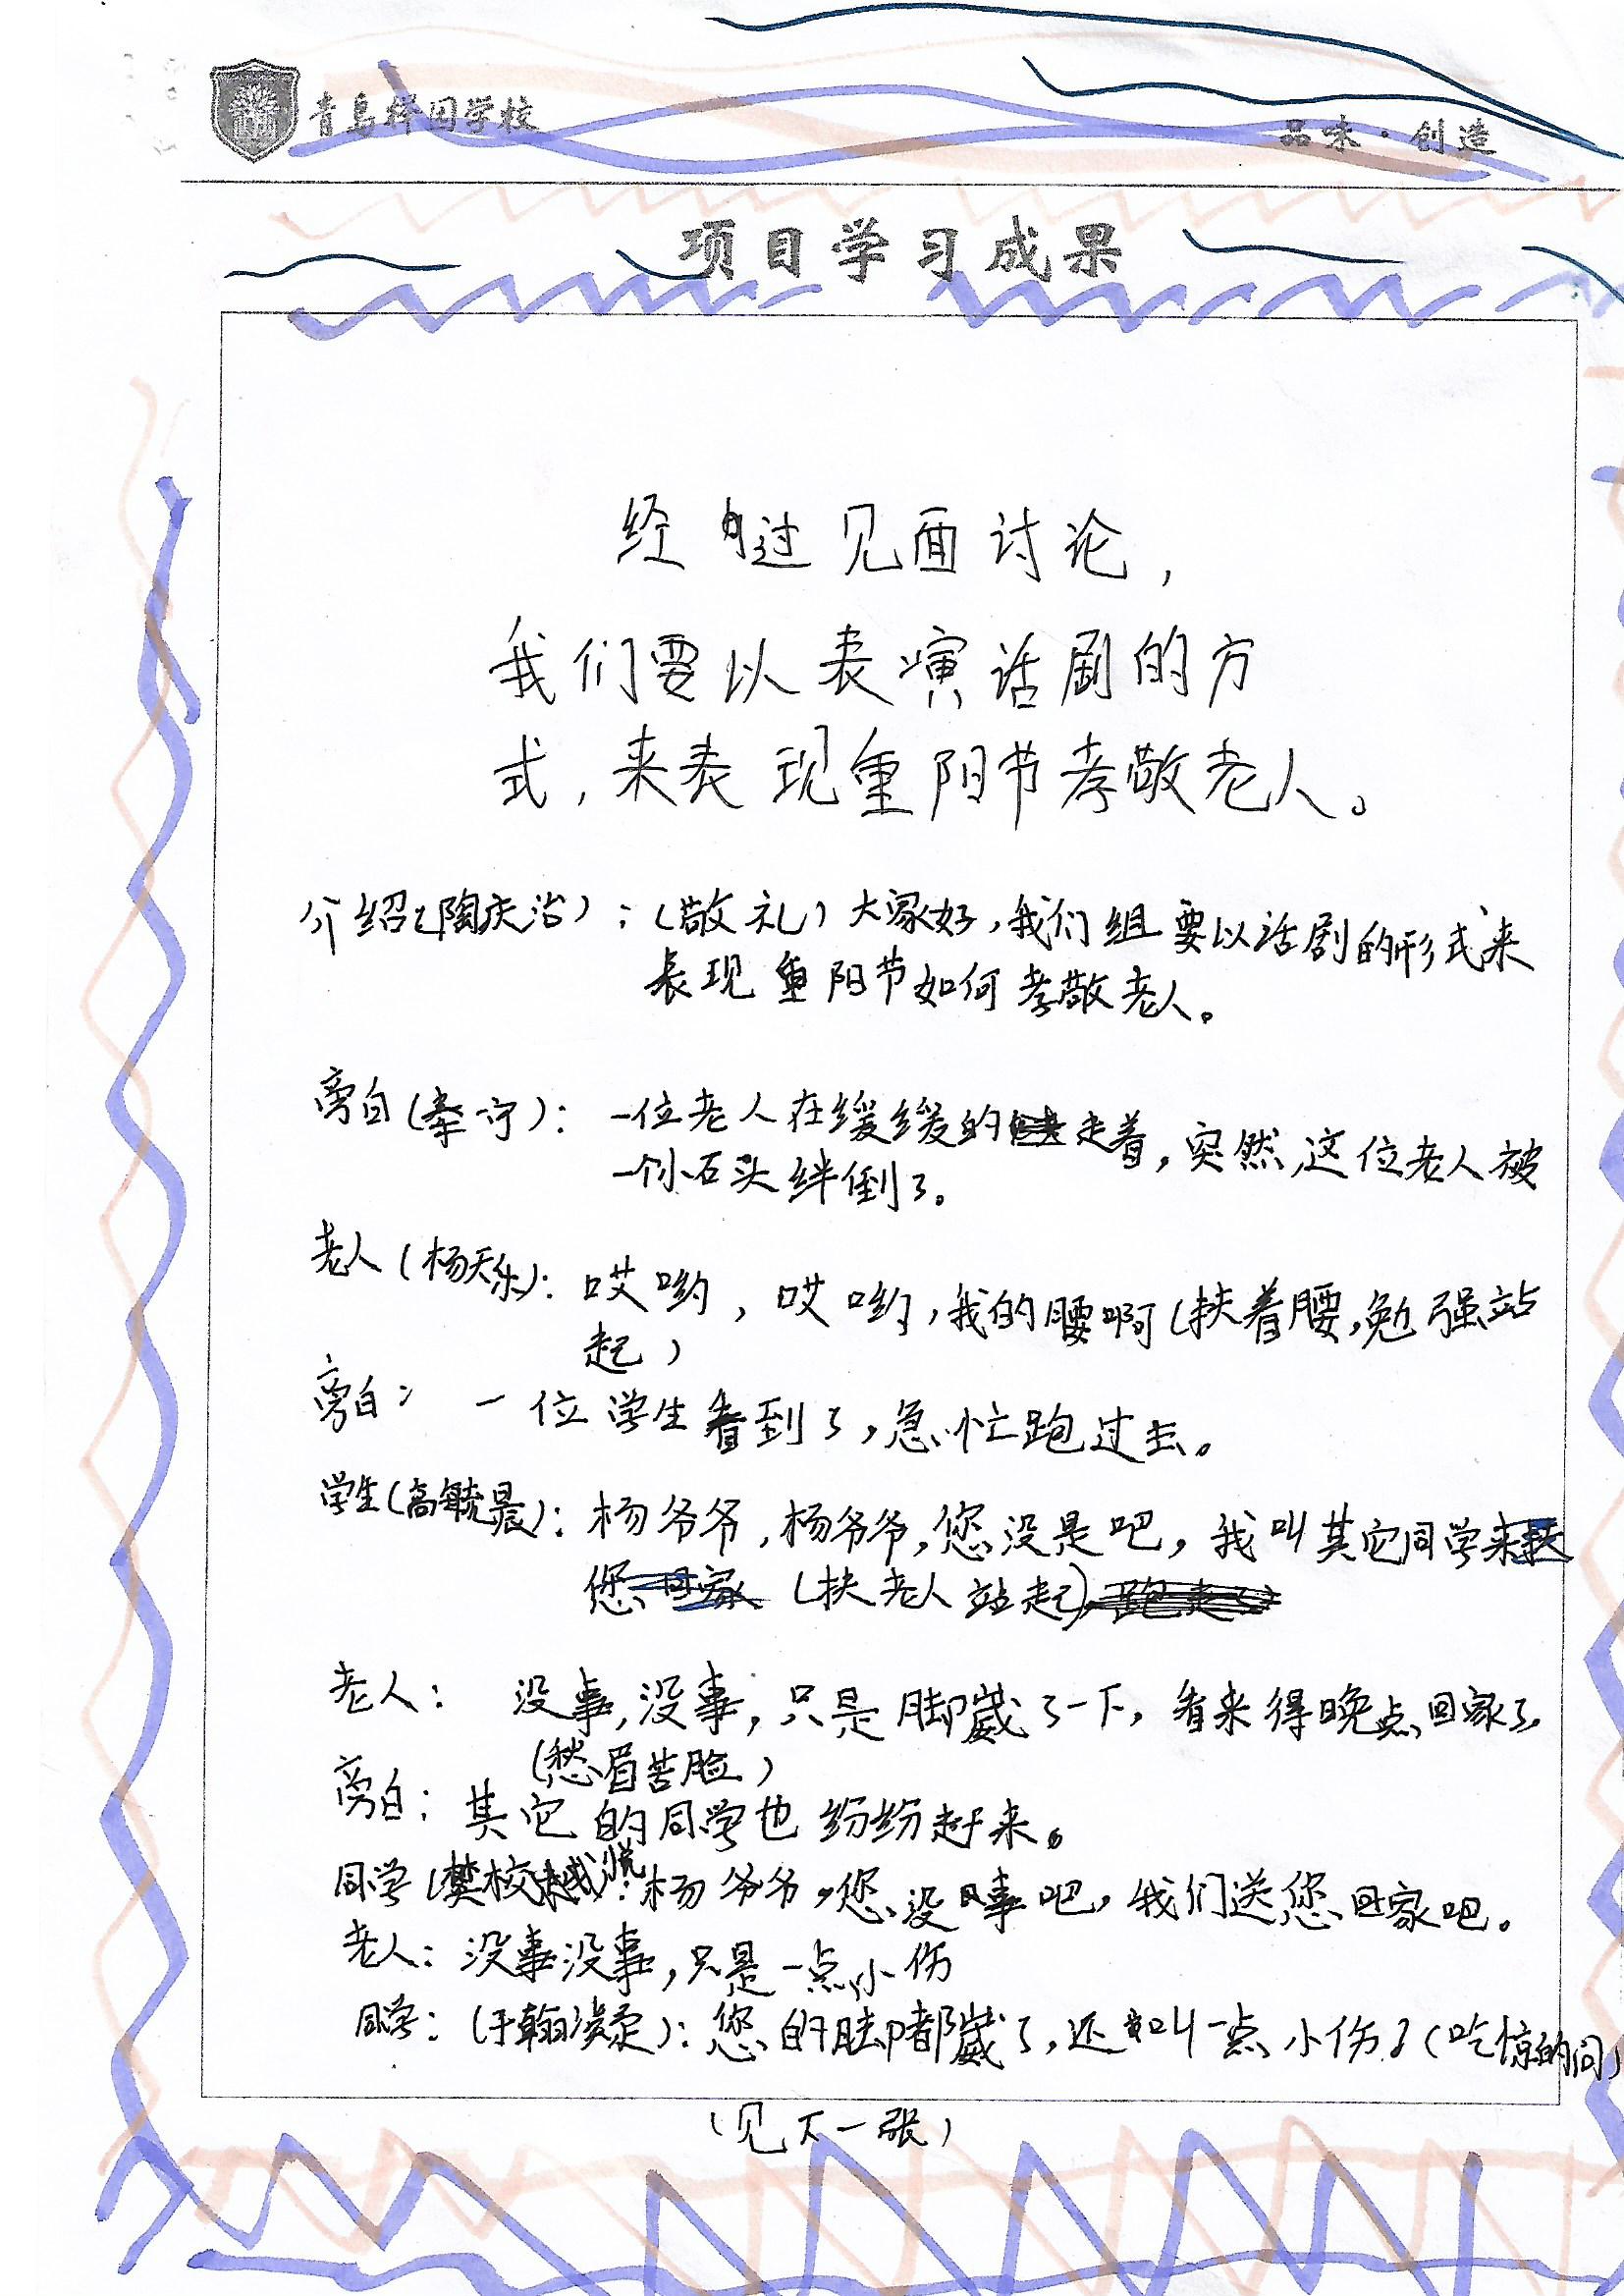 青鸟择园学校
品味·创造
项目学习成果
经过见面讨论,
我们要以表演话剧的方
式,来表现重阳节孝敬老人。
介绍(陶庆治):(敬礼)大家好,我们组要以话剧的形式来
表现重阳节如何孝敬老人。
旁白(牵宁):一位老人在缓缓的走着,突然,这位老人被
一个小石头绊倒了。
老人(杨天乐):哎哟,哎哟,我的腰啊(扶着腰,勉强站
起)
旁白:一位学生看到了,急忙跑过去。
学生(高毓晨):杨爷爷,杨爷爷,您没是吧,我叫其它同学来扶
您回家(扶老人站起)跑走了
老人:没事,没事,只是脚崴了一下,看来得晚点回家了。
(愁眉苦脸)
旁白:其它的同学也纷纷赶来。
同学(樊校悦):杨爷爷,您没事吧,我们送您回家吧。
老人:没事没事,只是一点小伤
同学:(于翰凝):您的脚都崴了,还叫一点小伤?(吃惊的问)
(见下一张)